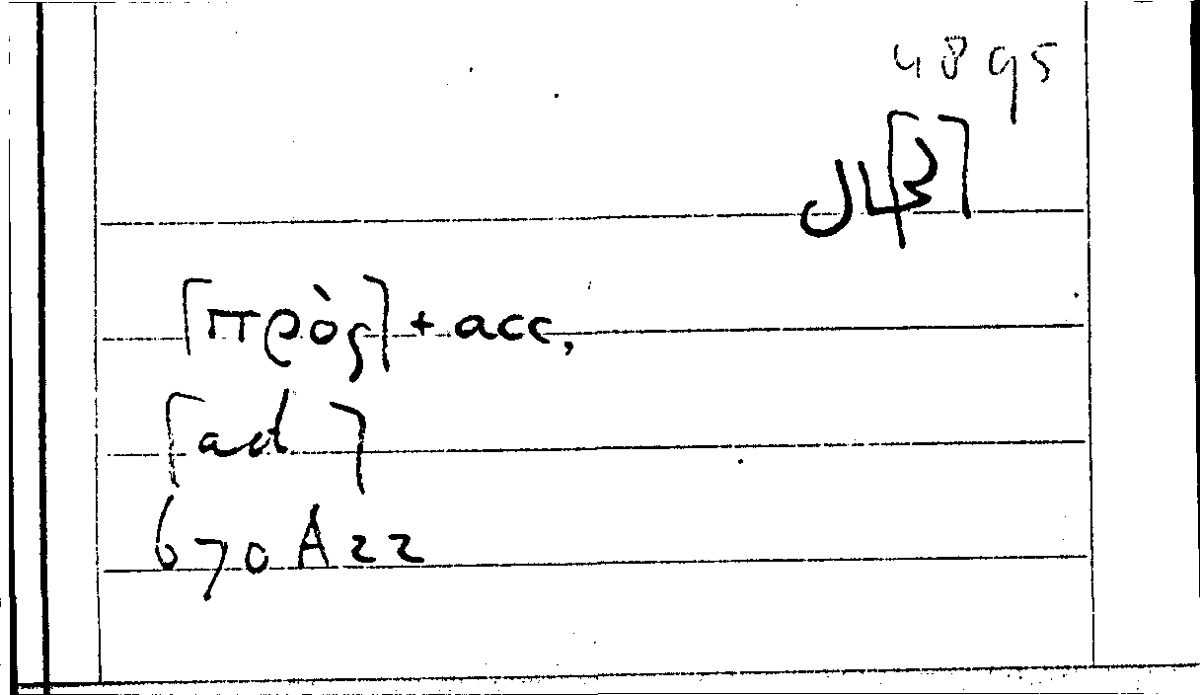 4895
⌈πρὸς⌉ + acc,
⌈ad⌉
670 A 22